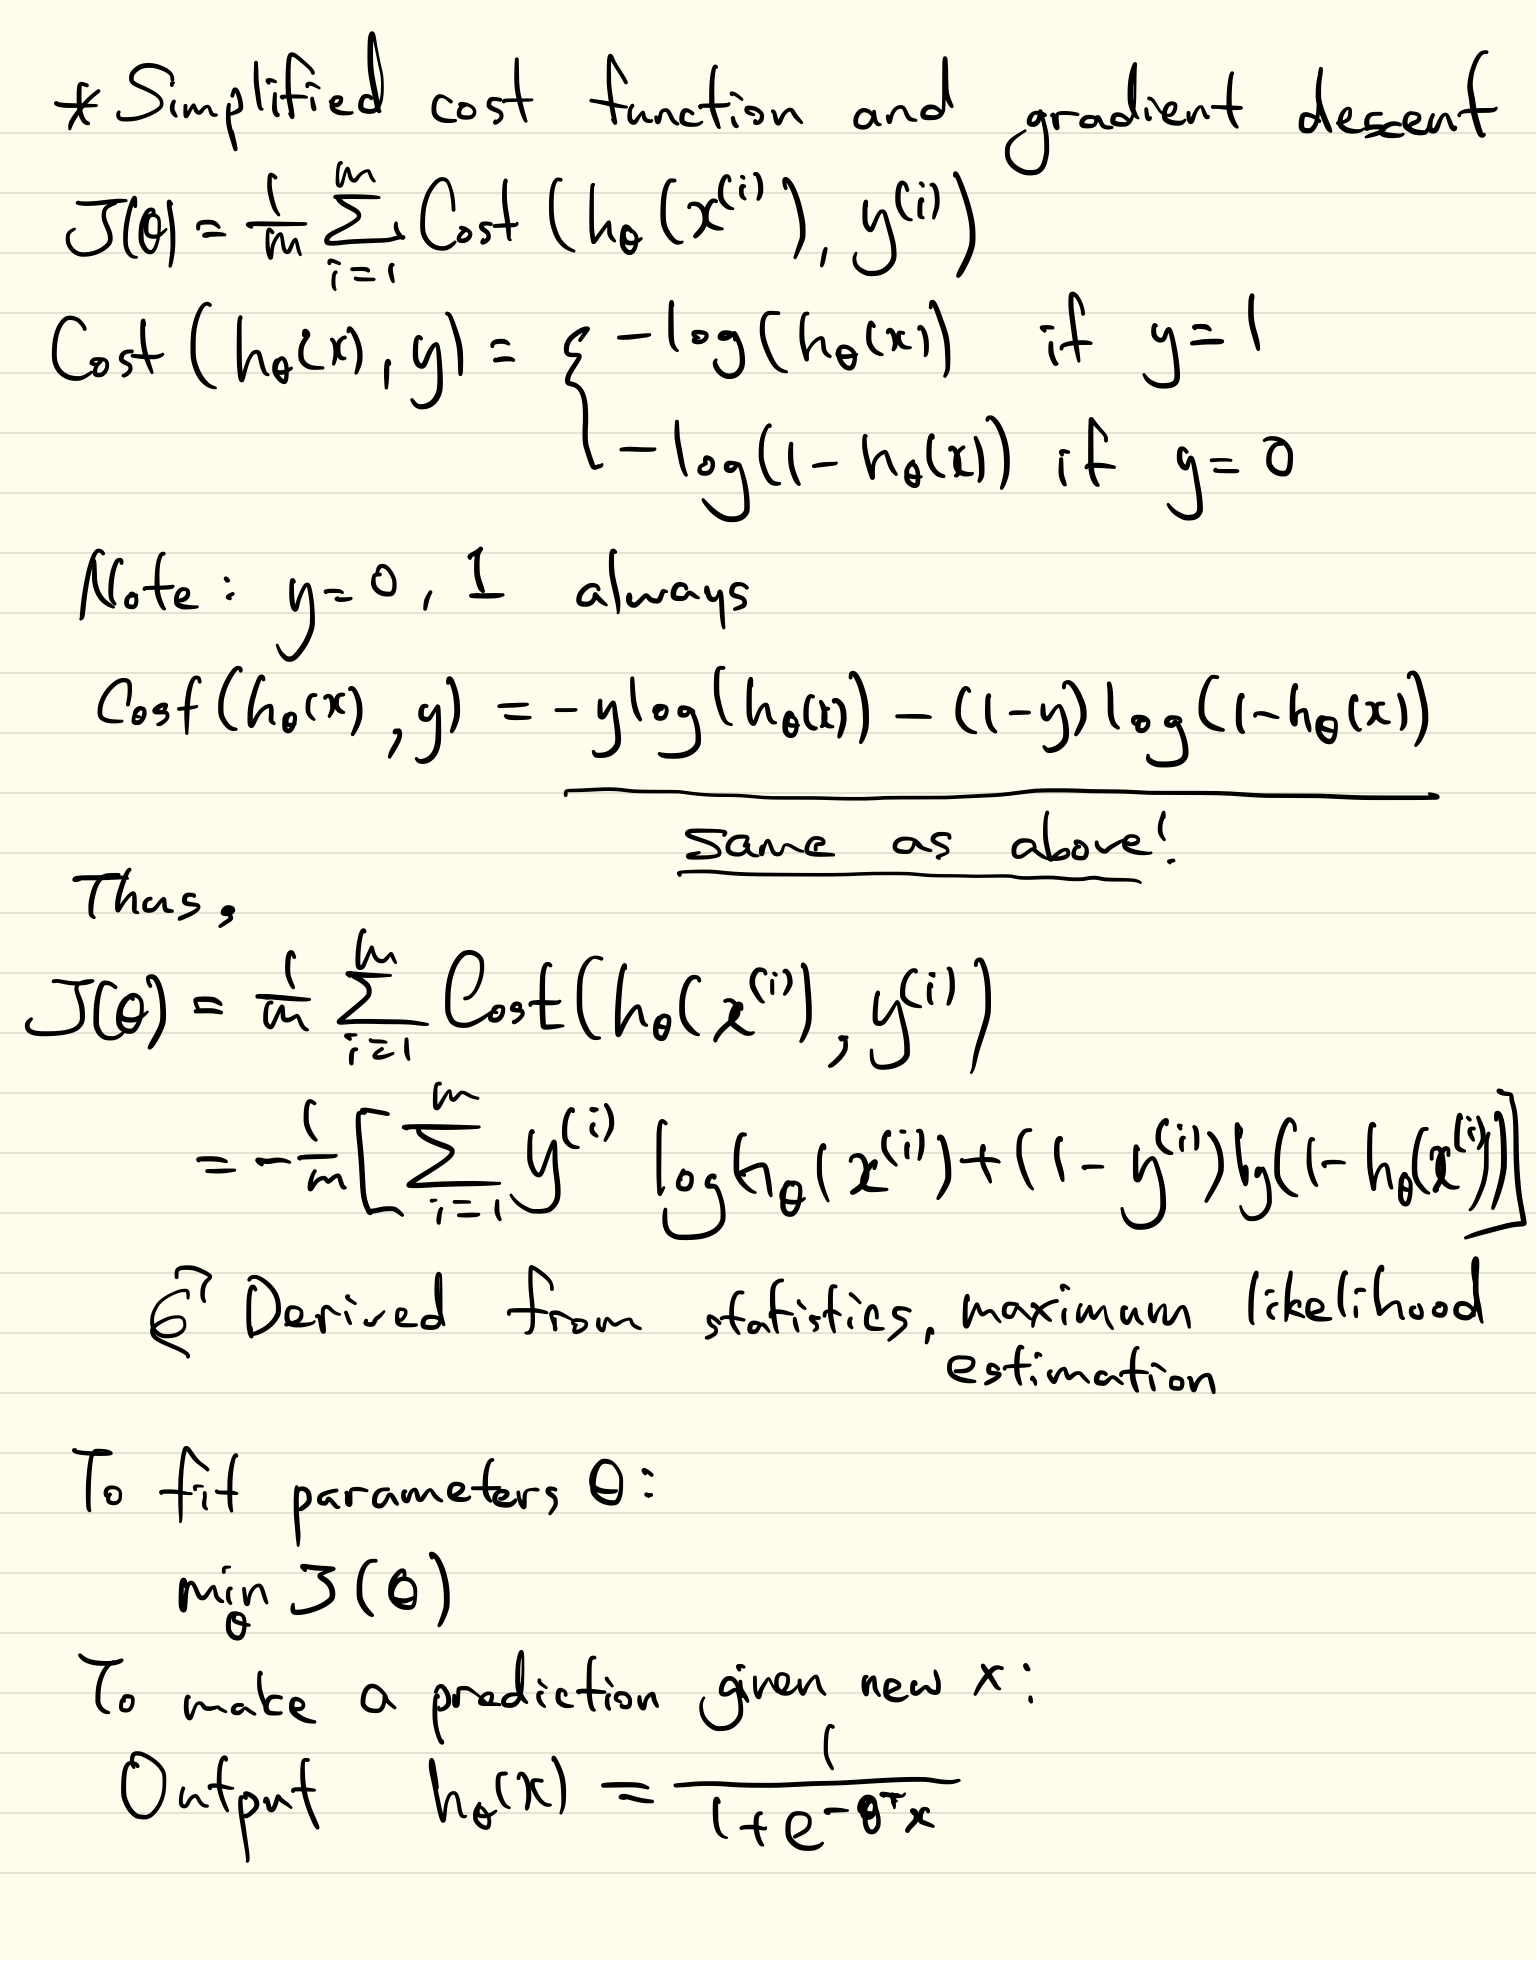 * Simplified cost function and gradient descent
J(θ) = 1/m ∑_{i=1}^{m} Cost (h_θ(x^{(i)}), y^{(i)})
Cost (h_θ(x), y) = { -log(h_θ(x)) if y=1
-log(1-h_θ(x)) if y=0
Note: y=0, 1 always
Cost (h_θ(x), y) = -y log(h_θ(x)) - (1-y) log(1-h_θ(x))
same as above!
Thus,
J(θ) = 1/m ∑_{i=1}^{m} Cost (h_θ(x^{(i)}), y^{(i)})
= -1/m [∑_{i=1}^{m} y^{(i)} log h_θ(x^{(i)}) + (1-y^{(i)}) log(1-h_θ(x^{(i)}))]
Derived from statistics, maximum likelihood
estimation
To fit parameters θ:
min_θ J(θ)
To make a prediction given new x:
Output h_θ(x) = 1/(1+e^{-θ^T x})